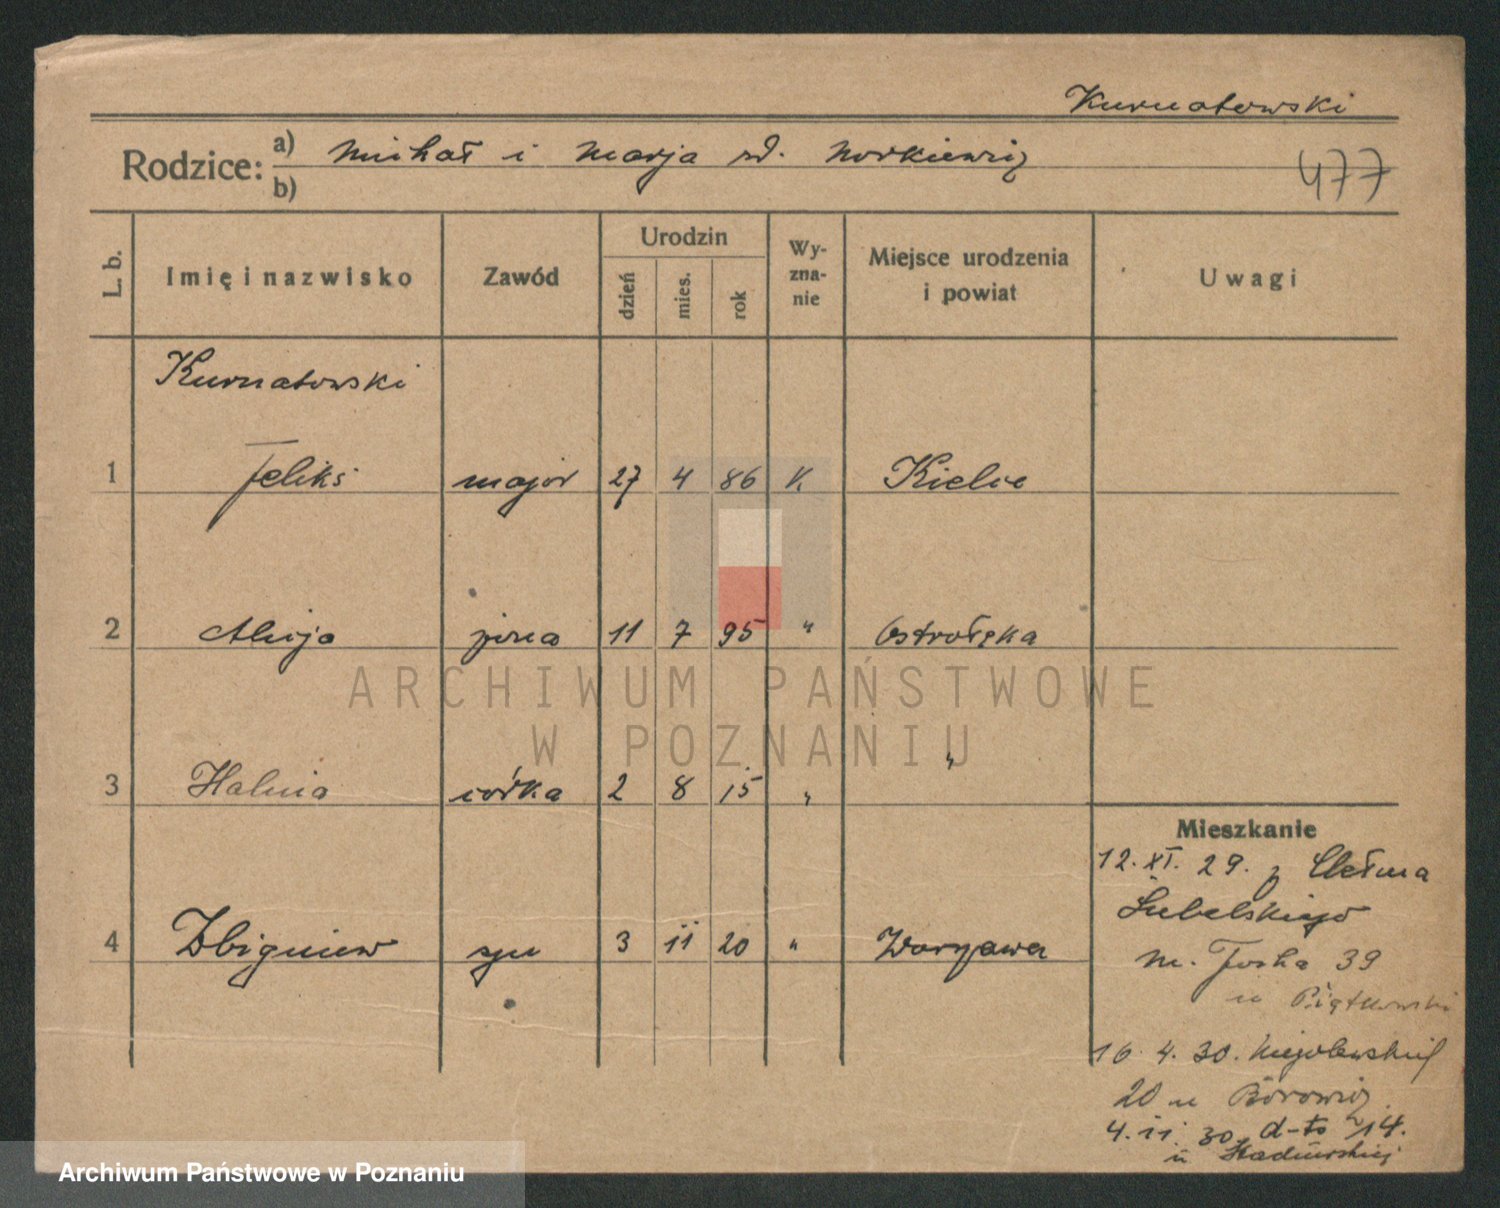 Kurnatowski
Rodzice: a) Michał i Marja zd. Norkiewicz
b)
477
L. b.
Imię i nazwisko
Zawód
Urodzin
dzień
mies.
rok
Wy-
zna-
nie
Miejsce urodzenia
i powiat
Uwagi
Kurnatowski
1 Feliks major 27 4 86 K. Kielce
2 Alicja żona 11 7 95 " Ostrołęka
3 Halina córka 2 8 15 " "
4 Zbigniew syn 3 11 20 " Warszawa
Mieszkanie
12. XI. 29. z Chełma
Lubelskiego
m. Focha 39
u Piątkowski
16. 4. 30. Niegolewskich
20 u
4. 11. 30. d-to 14.
u
ARCHIWUM PAŃSTWOWE
W POZNANIU
Archiwum Państwowe w Poznaniu